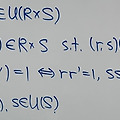 ∈U(R×S)
)∈R×S s.t. (r,s)(
')=1 ⇔ rr'=1, ss
), s∈U(S).